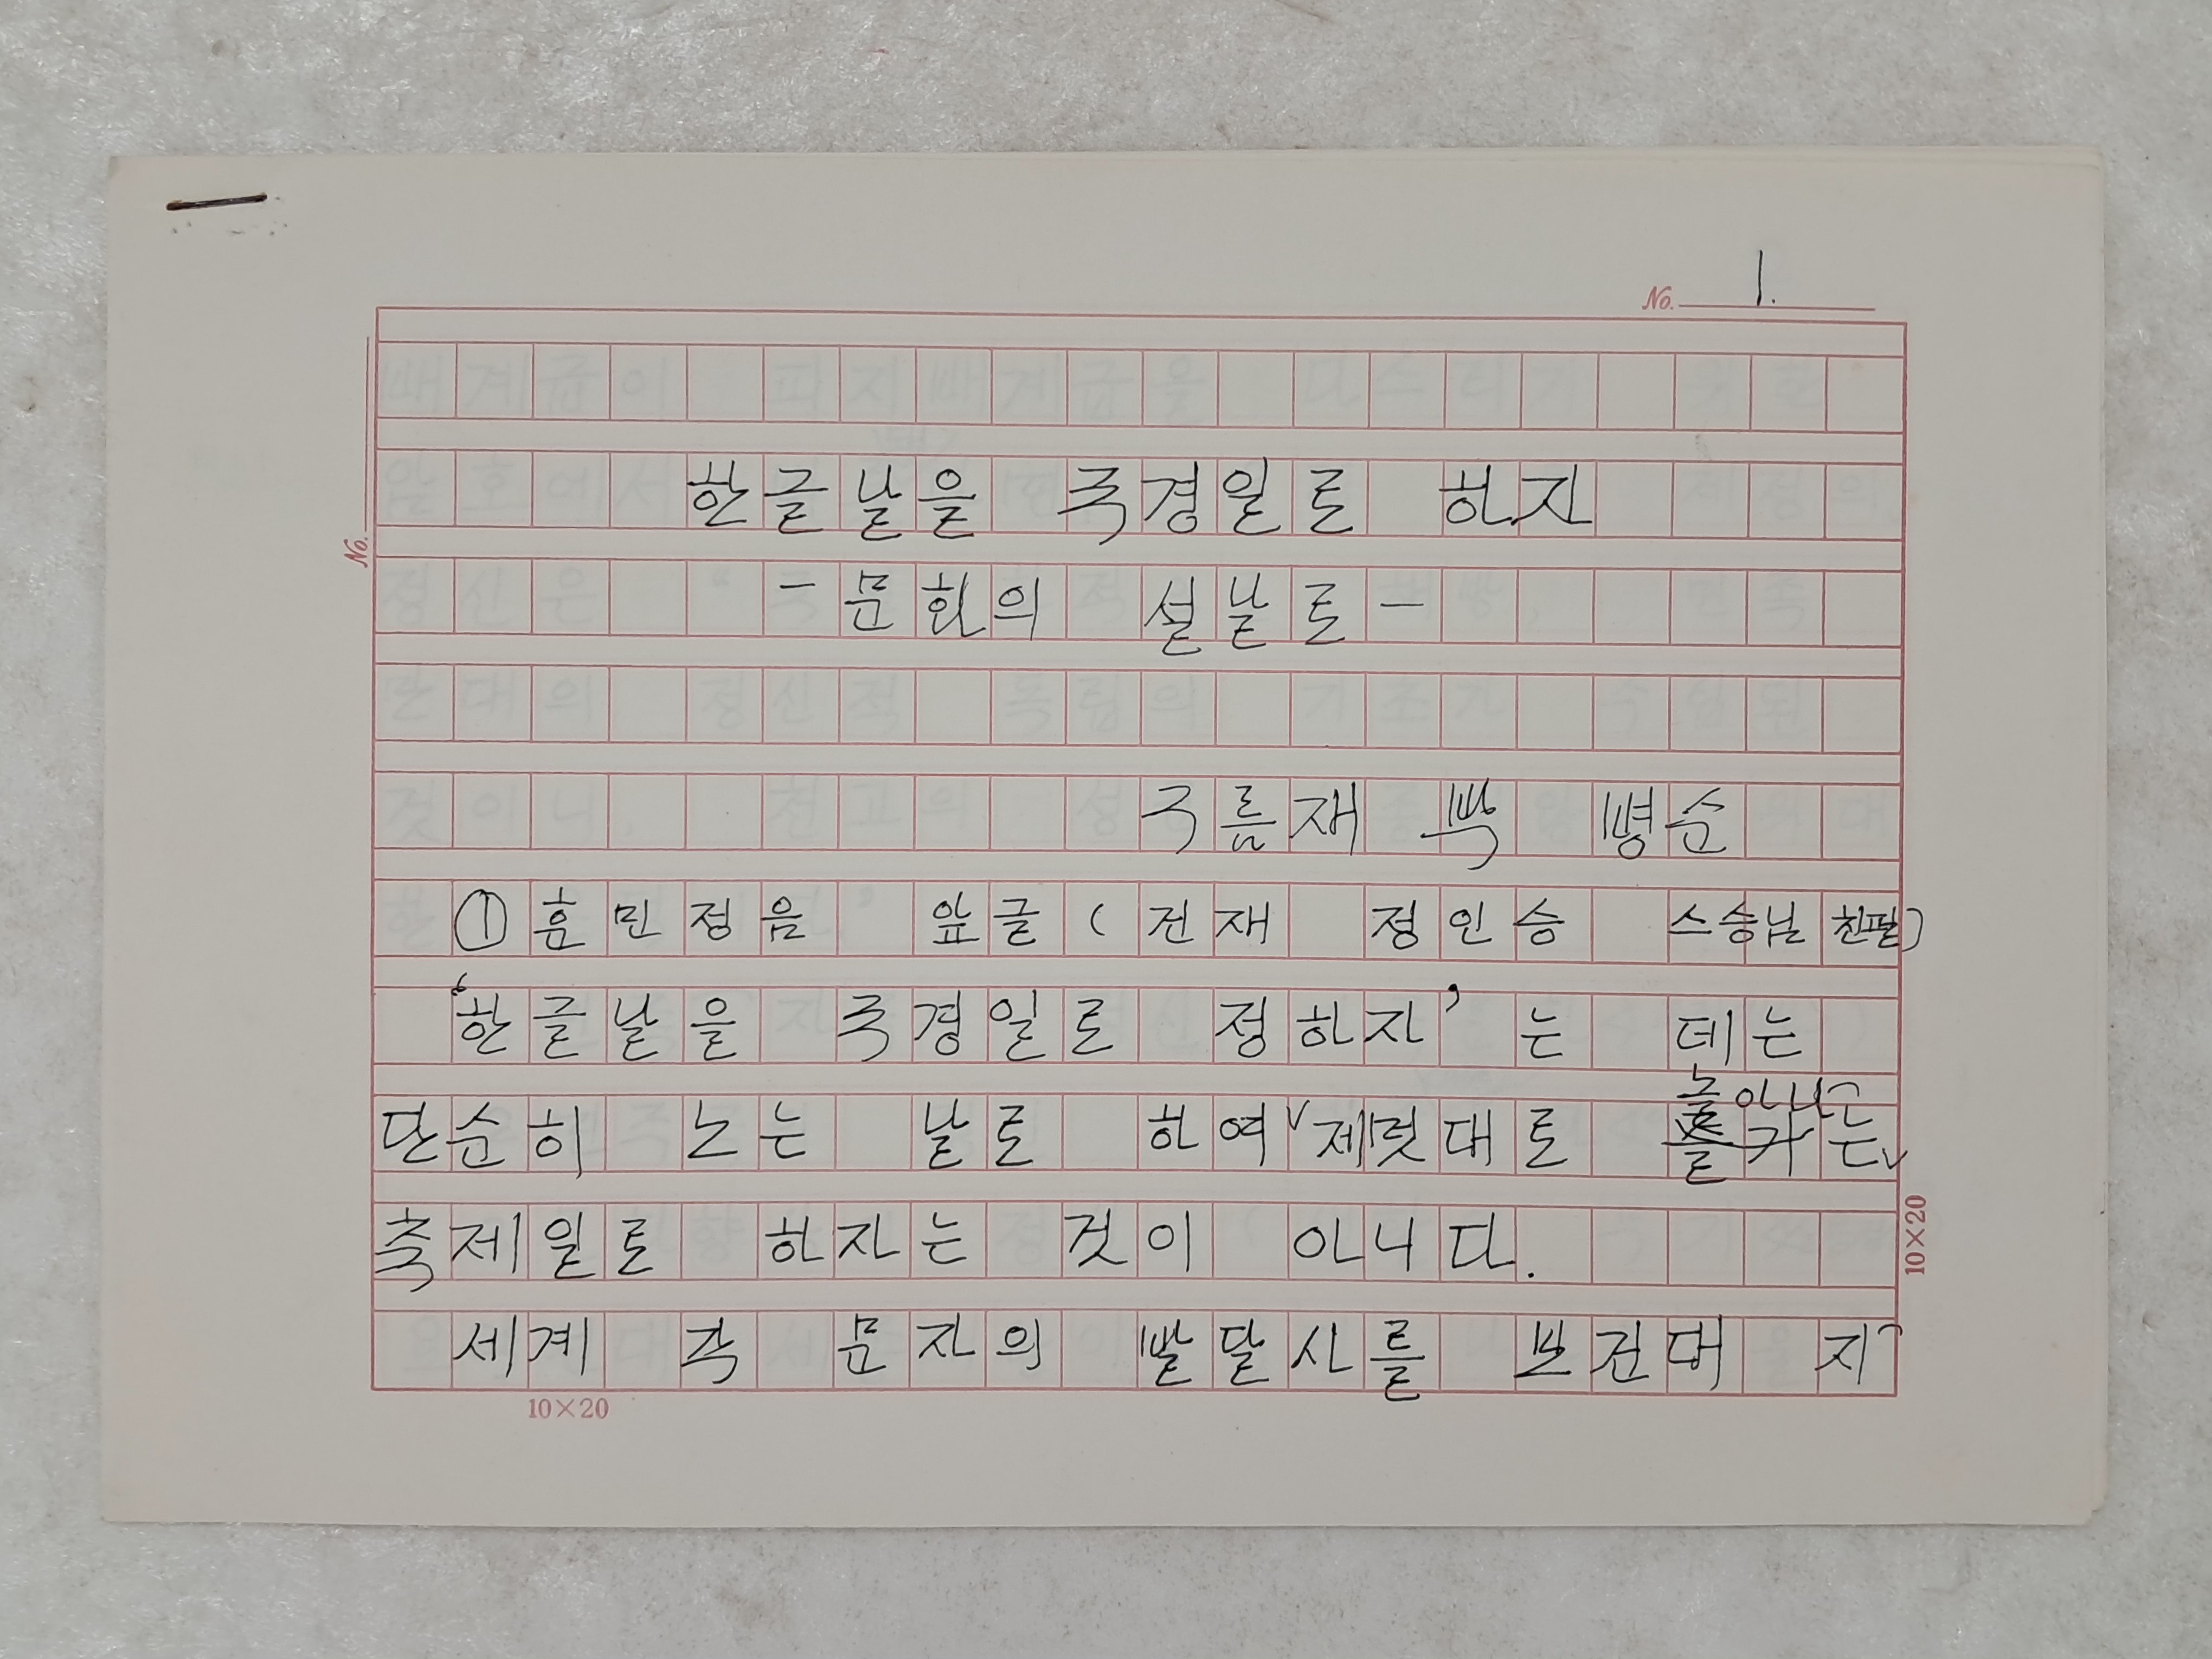 No. 1.
한글날을 국경일로 하자
- 문화의 설날로 -
구름재 박 병순
① 훈민정음 앞글 (건재 정인승 스승님 친필)
‘한글날을 국경일로 정하자’는 데는
단순히 노는 날로 하여 제멋대로 놀아나는
축제일로 하자는 것이 아니다.
세계 각 문자의 발달사를 보건대 지
No.
10×20
10×20